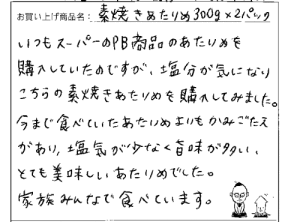 お買い上げ商品名: 素焼きあたりめ300g×2パック
いつもスーパーのPB商品のあたりめを
購入していたのですが、塩分が気になり
こちらの素焼きあたりめを購入してみました。
今まで食べていたあたりめよりもかみごたえ
があり、塩気が少なく旨味が多い、
とても美味しいあたりめでした。
家族みんなで食べています。